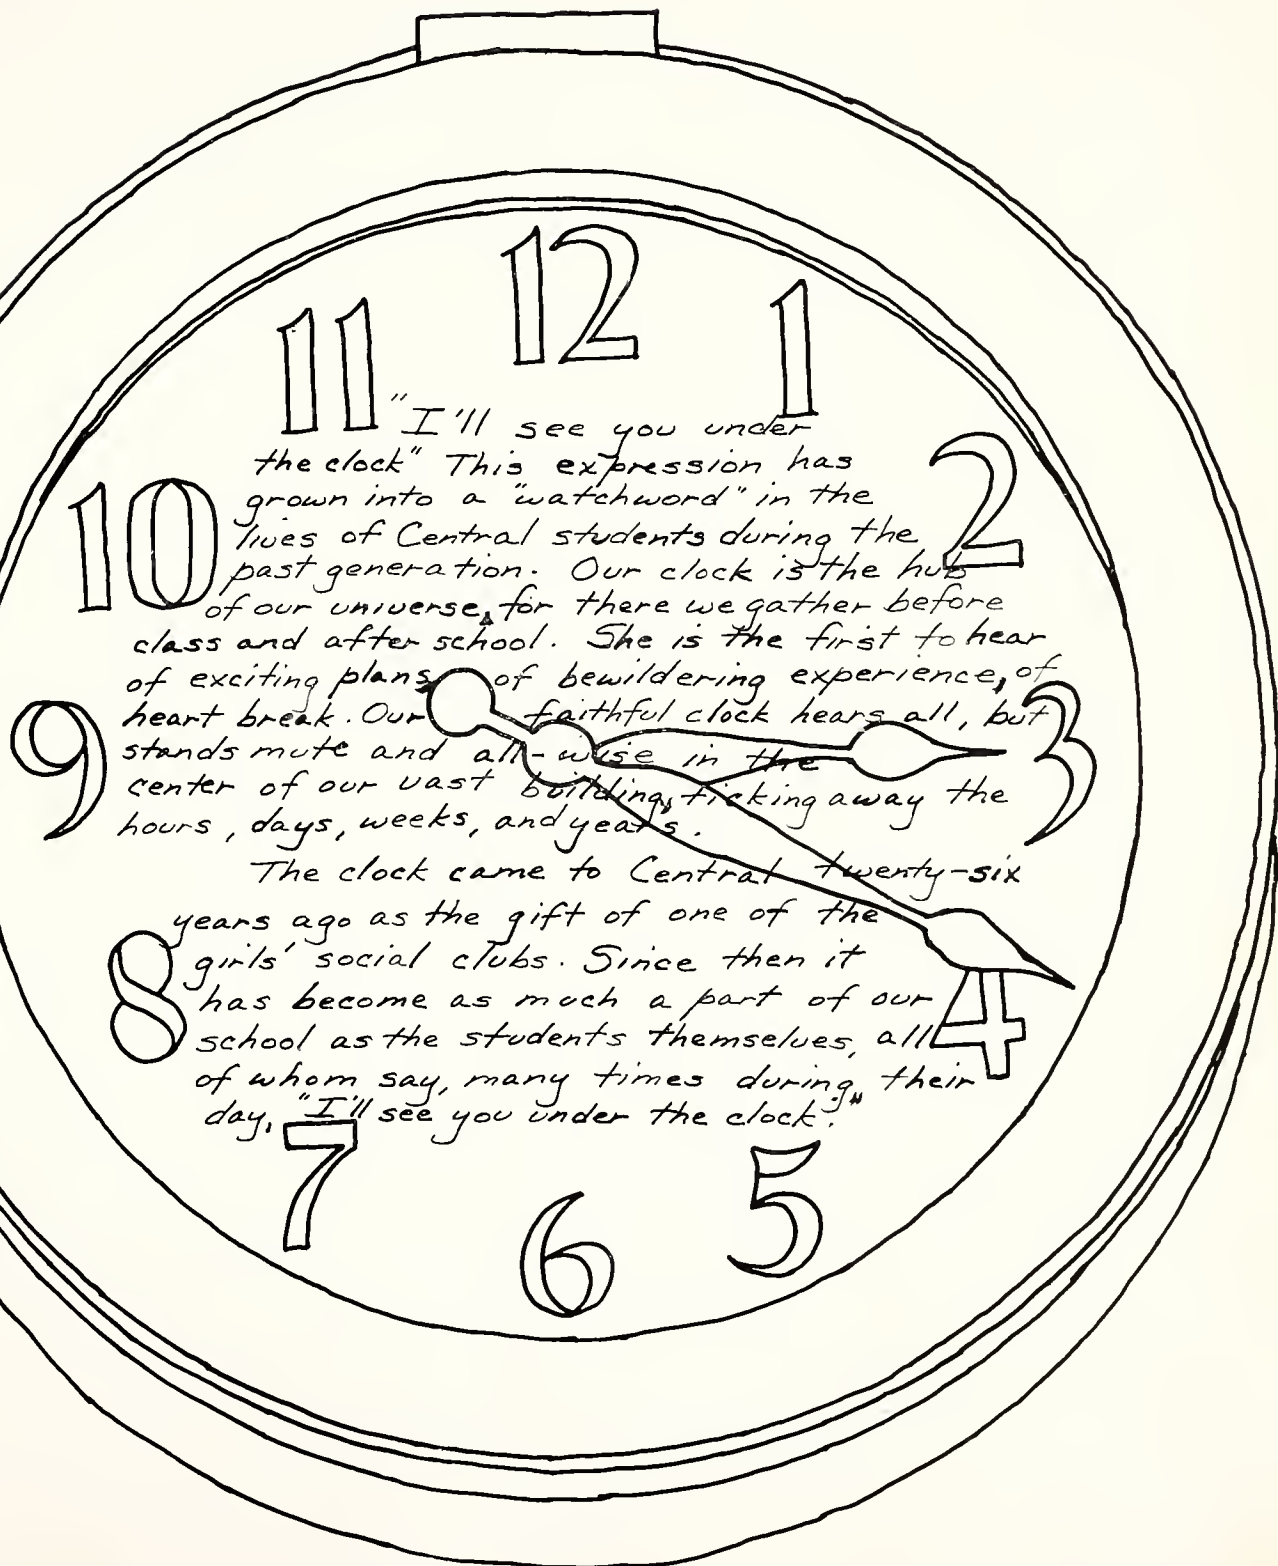 12
11
1
"I'll see you under
the clock" This expression has
grown into a "watchword" in the
lives of Central students during the
past generation. Our clock is the hub
of our universe, for there we gather before
class and after school. She is the first to hear
of exciting plans, of bewildering experience, of
heart break. Our faithful clock hears all, but
stands mute and all-wise in the
center of our vast building, ticking away the
hours, days, weeks, and years.
The clock came to Central twenty-six
years ago as the gift of one of the
girls' social clubs. Since then it
has become as much a part of our
school as the students themselves, all
of whom say, many times during their
day, "I'll see you under the clock."
2
10
9
3
8
4
7
5
6